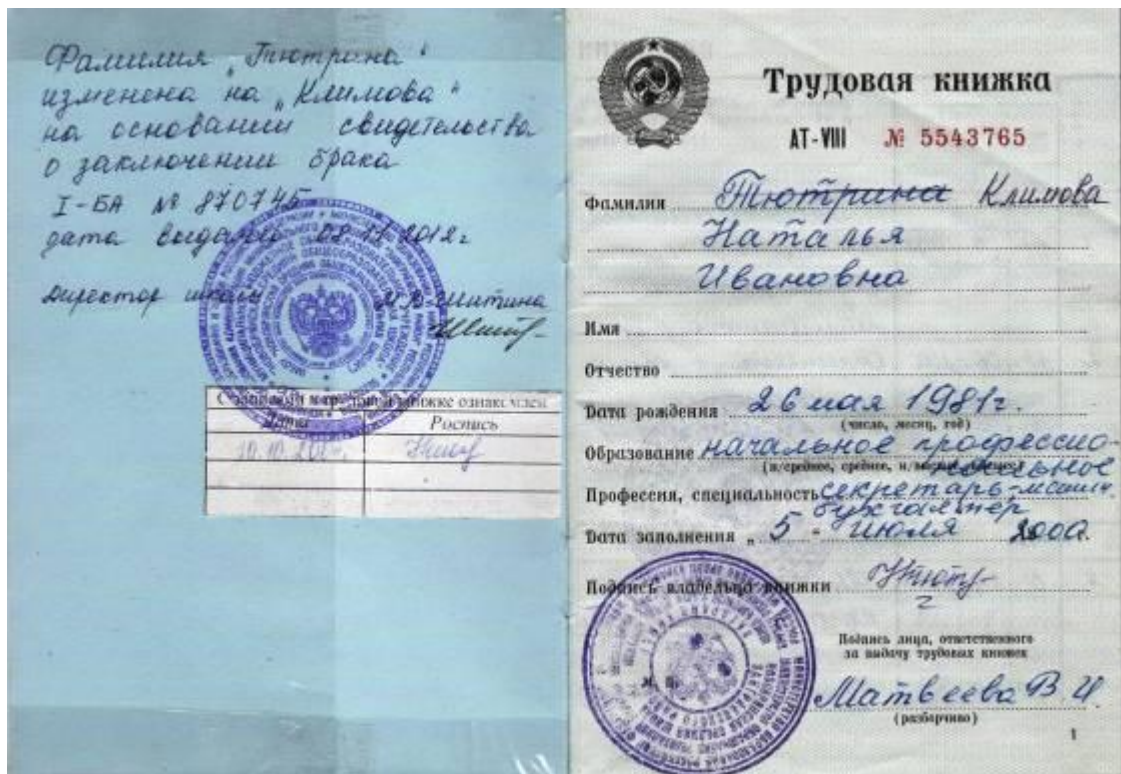 Фамилия „Тютрина“
изменена на „Климова“
на основании свидетельства
о заключении брака
I-БА № 870745
дата выдачи 02.11.2012г
Директор школы М.В. Шитина
С записями в трудовой книжке ознакомлен
Дата Роспись
Трудовая книжка
АТ-VIII № 5543765
Фамилия Тютрина Климова
Наталья
Ивановна
Имя
Отчество
Дата рождения 26 мая 1981г.
(число, месяц, год)
Образование начальное профессио-
нальное
(н/среднее, среднее, н/высшее, высшее)
Профессия, специальность секретарь-машин.
бухгалтер
Дата заполнения „ 5 - июля 2000.
Подпись владельца книжки
Подпись лица, ответственного
за выдачу трудовых книжек
Матвеева В. И
(разборчиво)
1